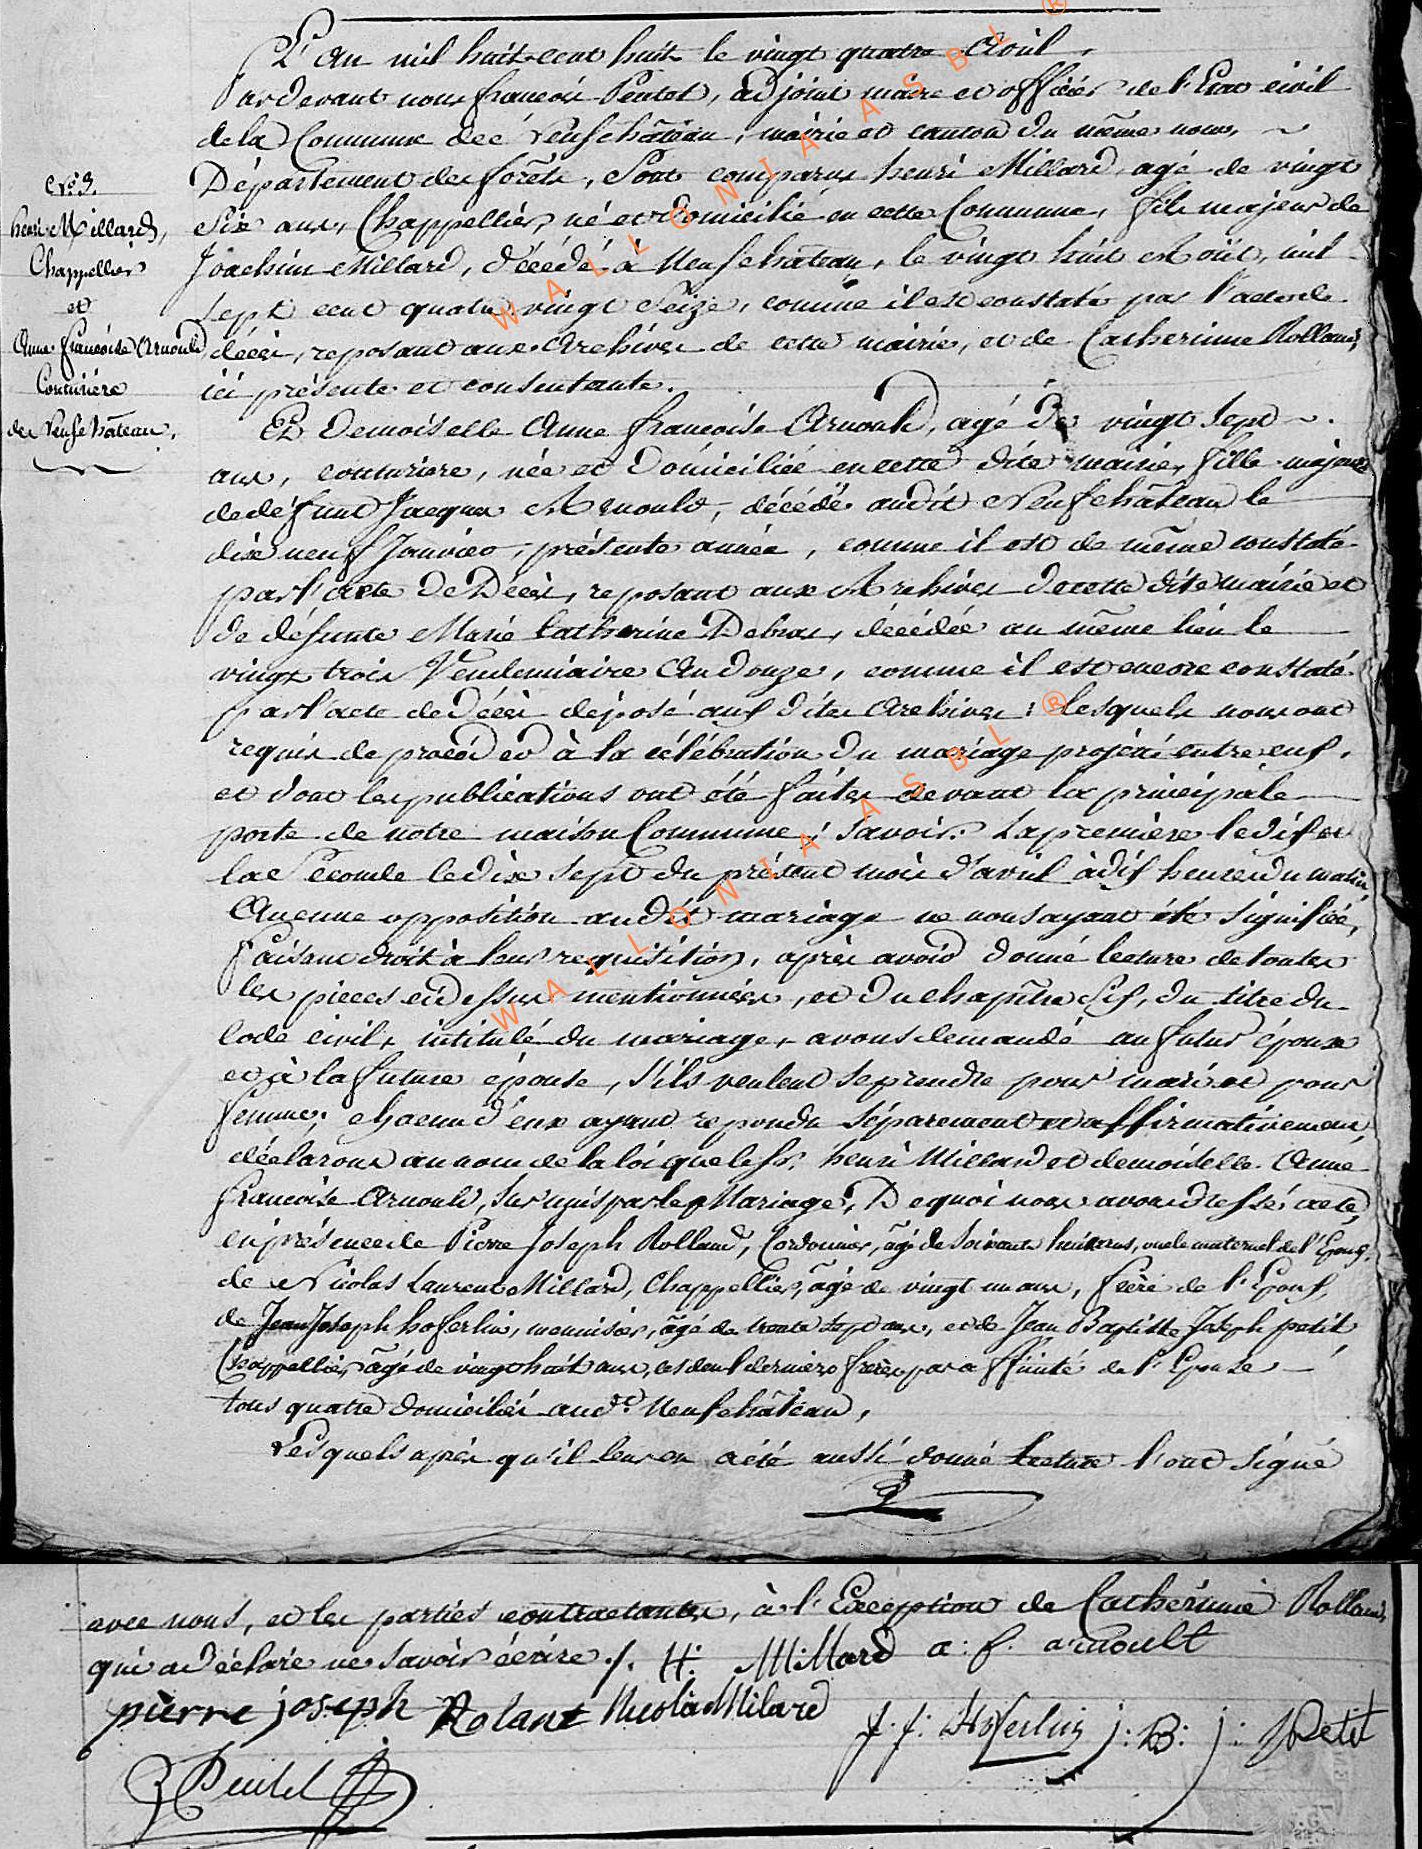 L'an mil huit cent huit le vingt quatre Avril,
Pardevant nous françois Pentel, adjoint maire et officier de l'Etat civil
de la Commune de Neufchâteau, mairie et canton du même nom,
Département des forêts, Sont comparus henri Millard, agé de vingt
six ans, Chappellier, né et Domicilié en cette Commune, fils majeur de
Joachim Millard, décédé à Neufchâteau, le vingt huit Août, mil
sept cent quatre vingt Seize, comme il est constaté par l'acte de
décès, reposant aux Archives de cette mairie, et de Catherinne Rolland,
ici présente et consentante.
N° 3.
henri Millard,
Chappellier
et
Anne françoise Arnould
Couturière
de Neufchâteau.
Et Demoiselle Anne françoise Arnould, agé De vingt Sept
ans, couturiere, née et Domiciliée en cette dite mairie, fille majeure
de défunt Jacques Arnould, décédé audit Neufchâteau le
dix neuf Janvier, présente année, comme il est de même constaté
par l'acte De Décès, reposant aux Archives de cette dite mairie et
de défunte Marie Catherine Debras, décédée au même lieu le
vingt trois Vendemiaire An douze, comme il est encore constaté
par l'acte de Décès déposé aux dites Archives : lesquels nous ont
requis de procéder à la célébration du mariage projeté entre eux,
et dont les publications ont été faites devant la principale
porte de notre maison Commune ; Savoir : la première le dix et
la Seconde le dix sept du présent mois d'avril à dix heures du matin
Aucune opposition audit mariage ne nous ayant été signifiée,
faisant droit à leur requisition, après avoir donné lecture de toutes
les pieces ci dessus mentionnées, et du chapitre six, du titre du
Code civil, intitulé du mariage, avons demandé au futur époux
et à la future épouse, s'ils veulent se prendre pour mari et pour
femme ; chacun d'eux ayant repondu séparement et affirmativement,
déclarons au nom de la loi que le Sr. henri Millard et demoiselle Anne
françoise Arnould, sur unis par le Mariage, De quoi nous avons dressé acte,
en présence de Pierre Joseph Rolland, Cordonnier, âgé de soixante huit ans, oncle maternel de l'Epoux,
de Nicolas Laurent Millard, Chappellier, âgé de vingt un ans, frère de l'Epoux,
de Jean Joseph hoferlin, menuisier, âgé de trente sept ans, et de Jean Baptiste Joseph petit,
Chappellier, âgé de vingt huit ans, ces deux derniers frères par affinité de l'Epouse
tous quatre domiciliés aud.t Neufchâteau,
Lesquels après qu'il leur en a été aussi donné lecture l'ont signé
avec nous, et les parties contractantes, à l'Exception de Catherinne Rolland,
qui a déclaré ne savoir écrire. /. H: Millard a: f: arnoult
pierre joseph Rolant Nicola Milard
J: J: Hoferlin j: B: j: Petit
Pentel
WALLONIA ASBL ®
WALLONIA ASBL ®